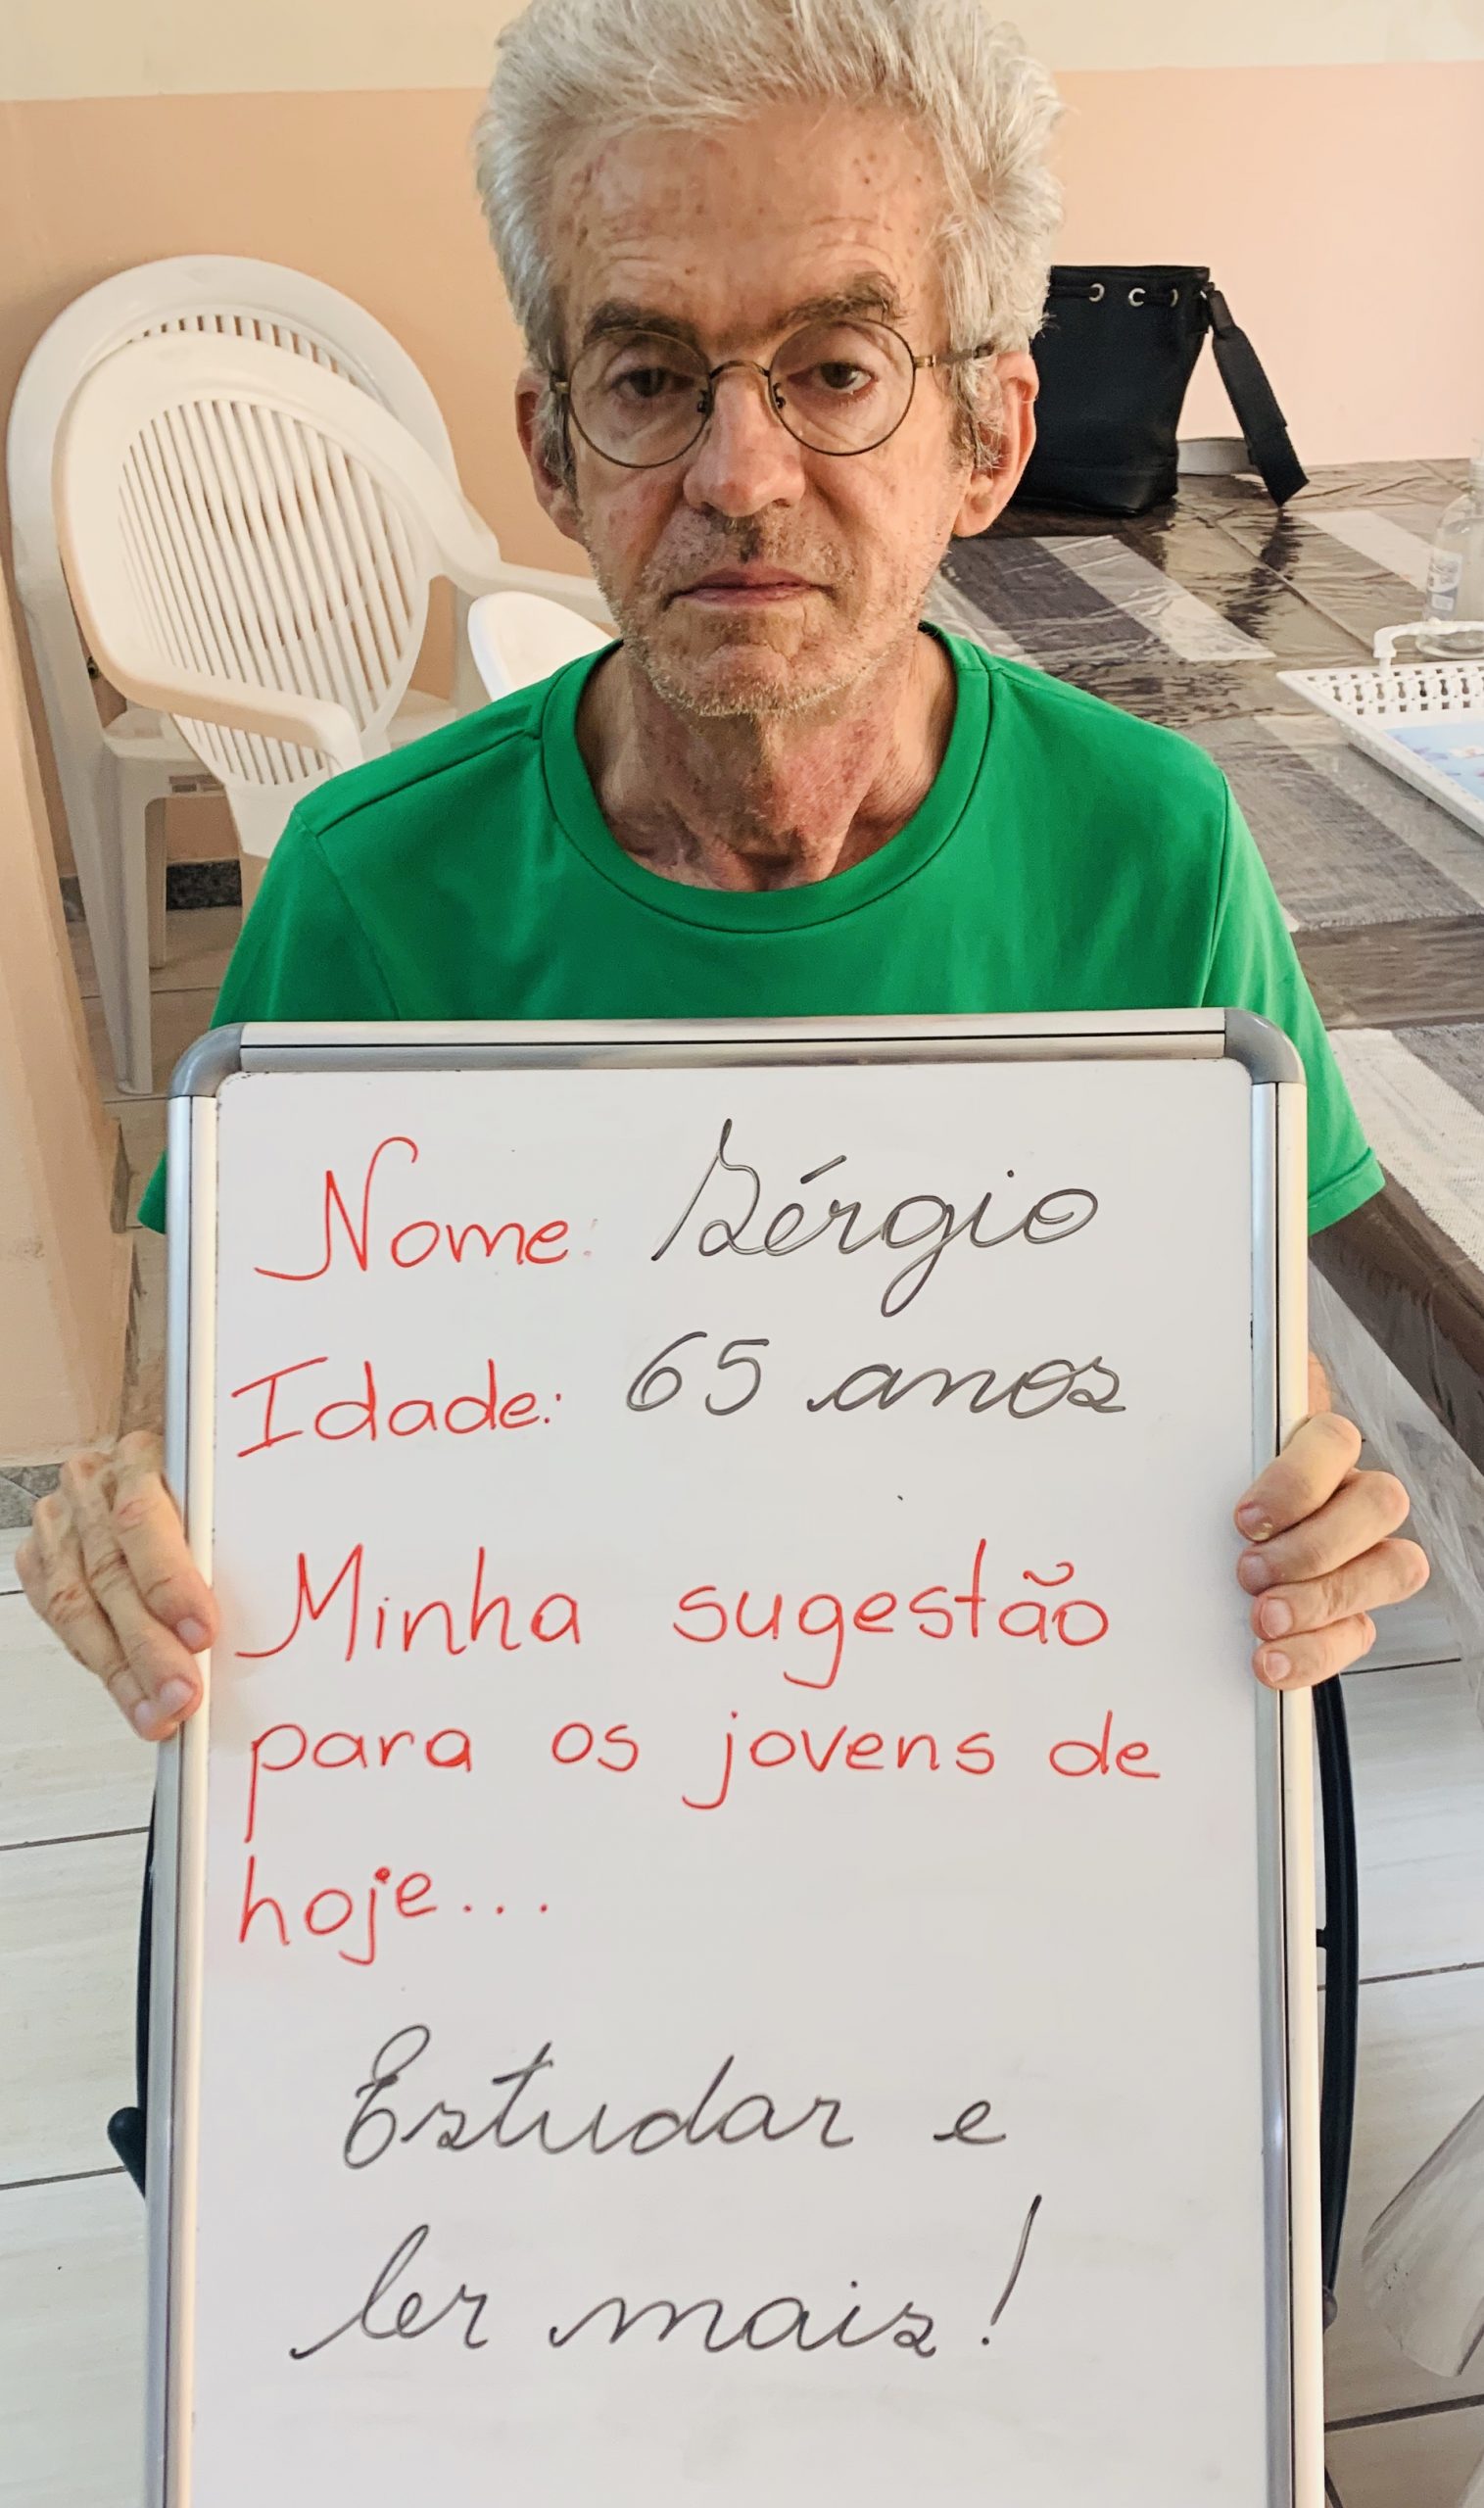 Nome: Sérgio
Idade: 65 anos
Minha sugestão
para os jovens de
hoje...
Estudar e
ler mais!